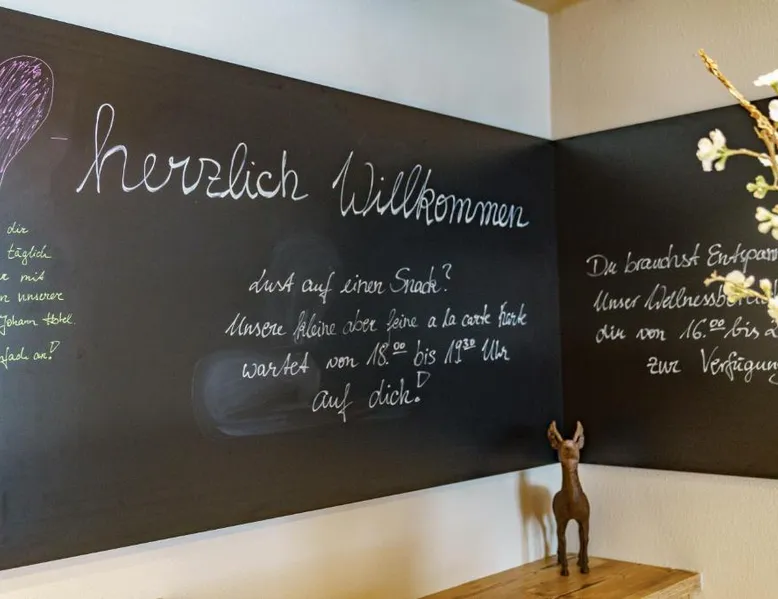 dir
täglich
mit
unserer
Johann Hotel.
an!
herzlich Willkommen
Lust auf einen Snack?
Unsere kleine aber feine a la carte Karte
wartet von 18.00 bis 19 30 Uhr
auf dich!
Du brauchst Entspann
Unser Wellnessbereich
dir von 16.00 bis 2
zur Verfügung